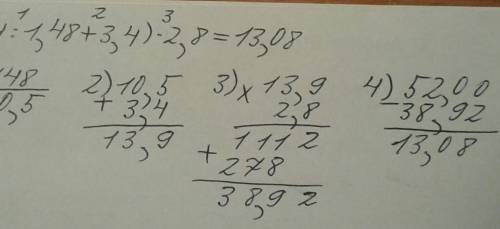 1 2 3
:1,48+3,4)·2,8=13,08
148
0,5
2) 10,5
+ 3,4
13,9
3) × 13,9
2,8
1112
+ 278
38,92
4) 52,00
- 38,92
13,08